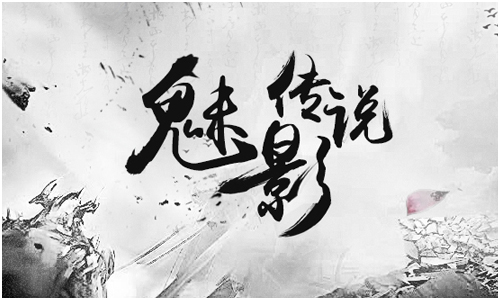 魅影传说